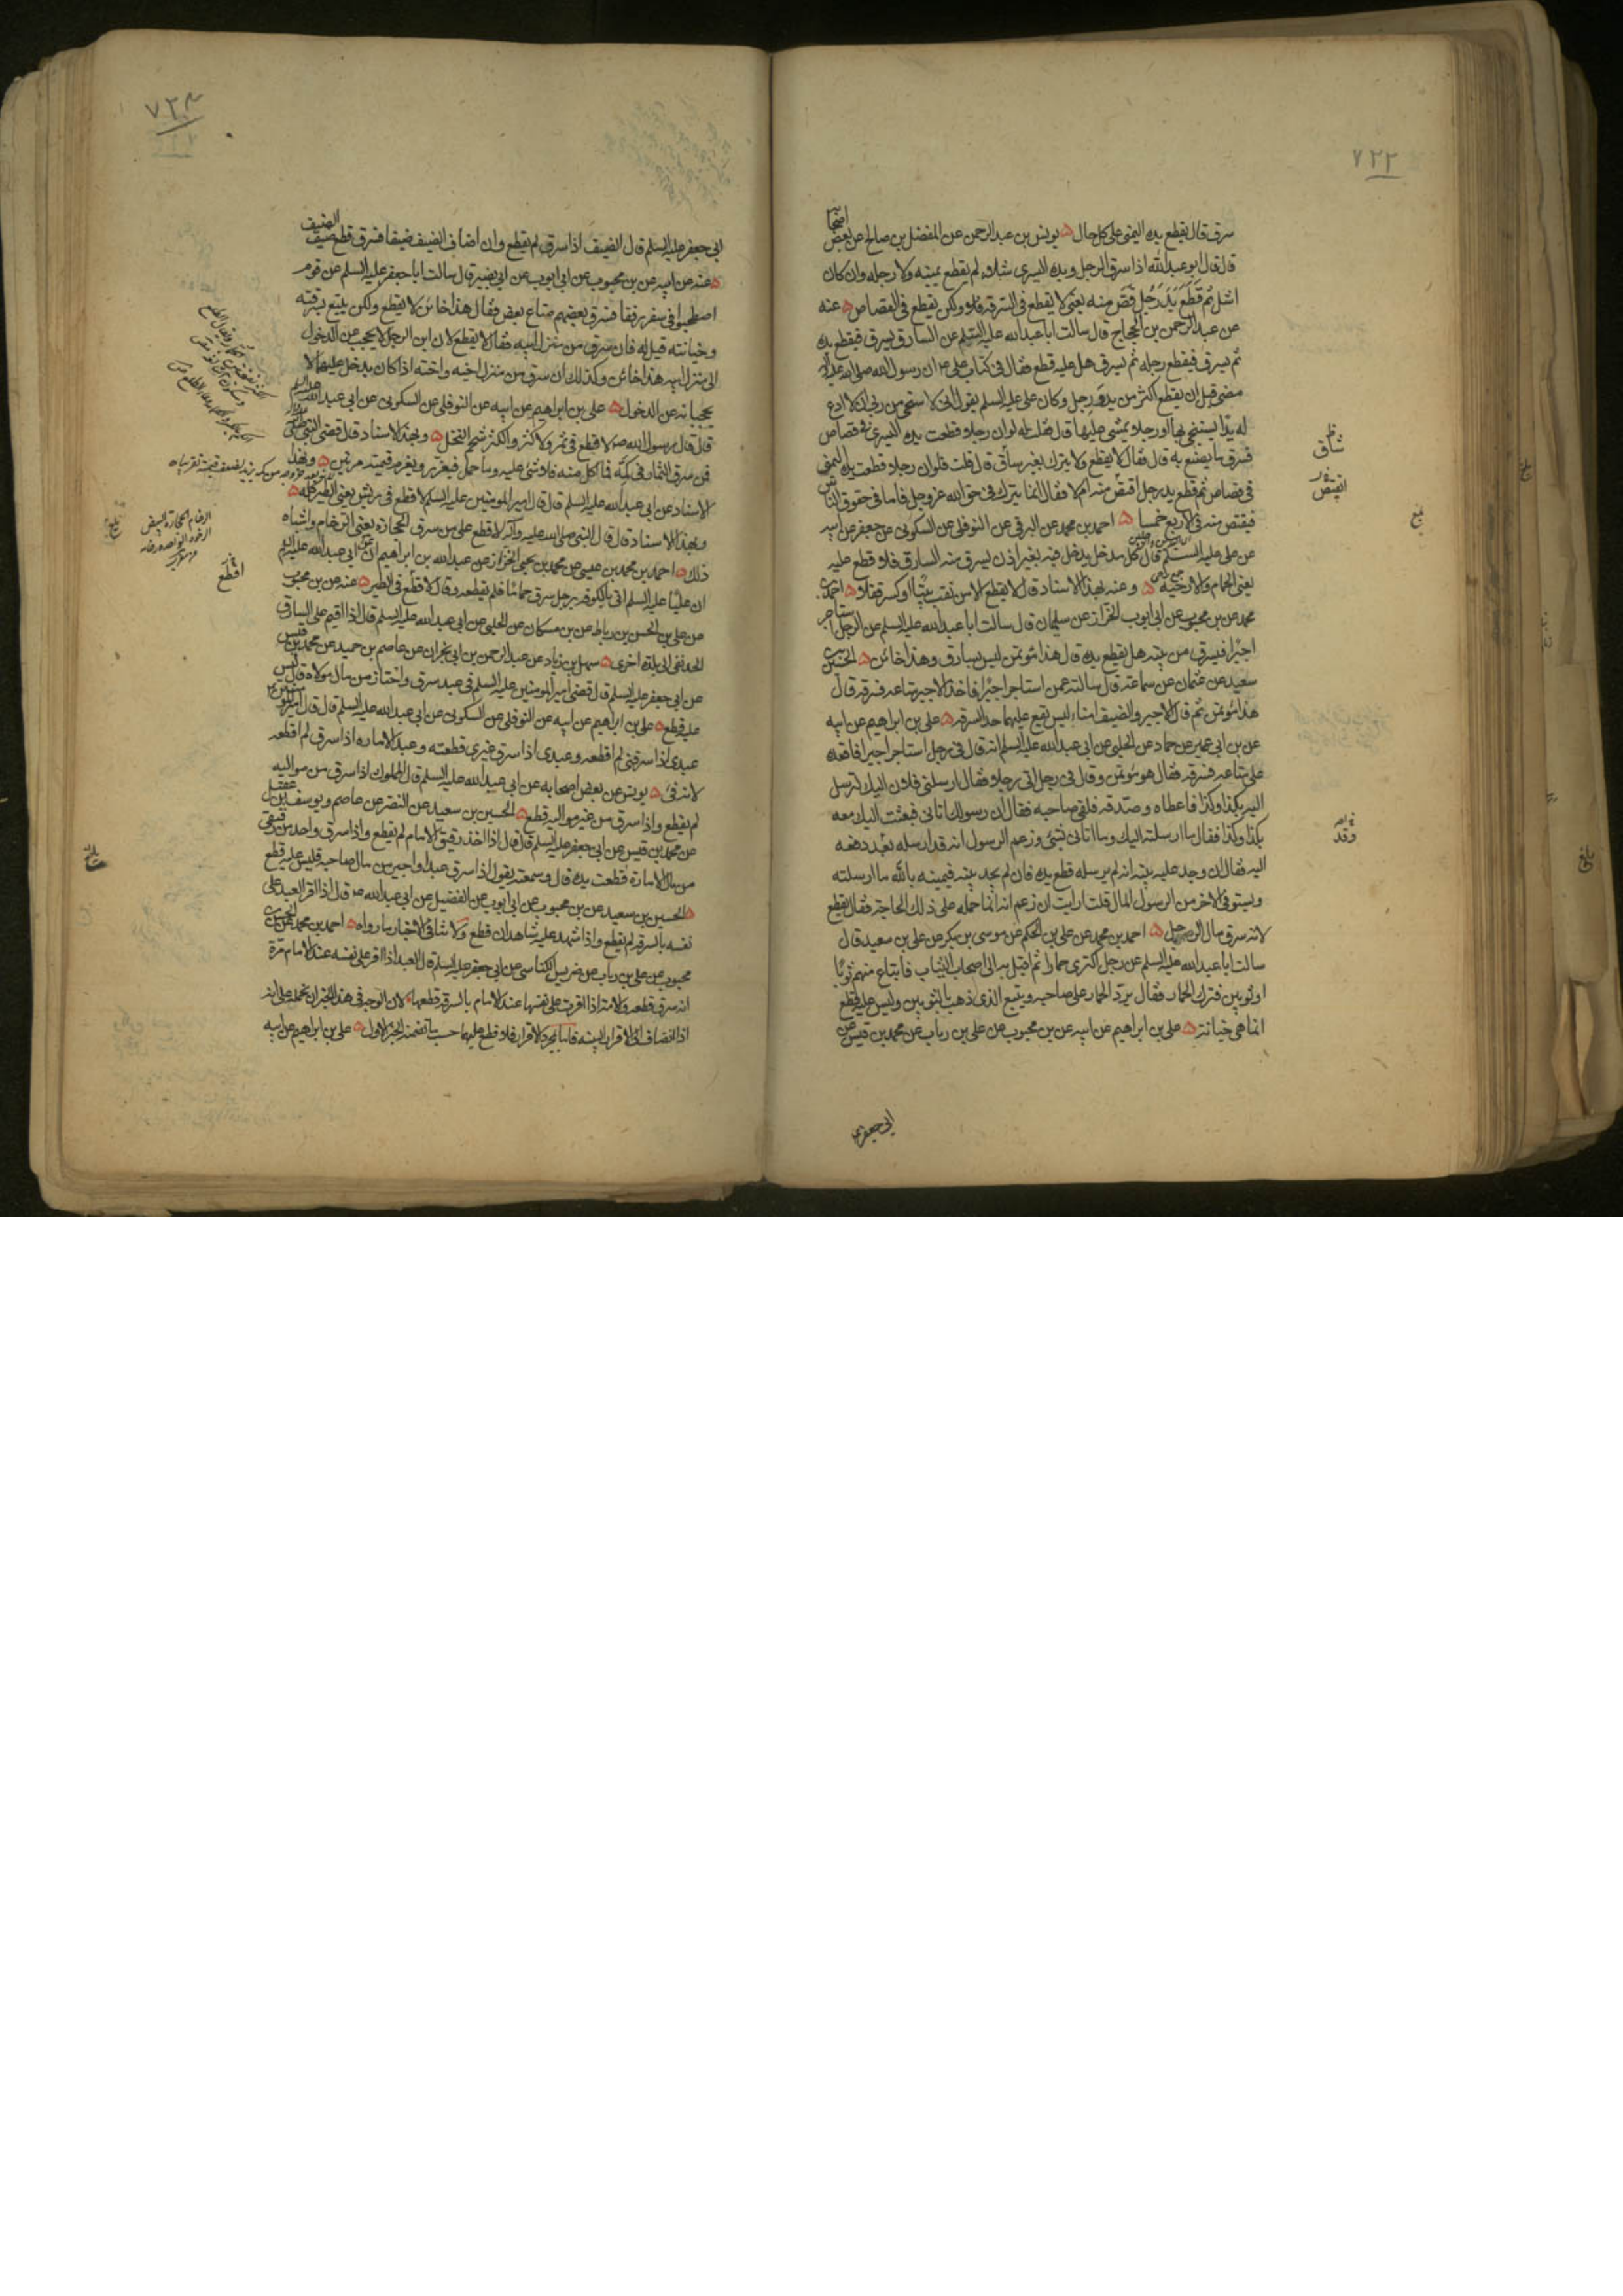 ٧٢٢
سرق قال يقطع يده اليمنى على كل حال ۵ يونس بن عبد الرحمن عن المفضل بن صالح عن بعض اصحابه
قال قال ابو عبد الله اذا سرق الرجل ويده اليسرى شلاء لم يقطع يمينه ولا رجله وان كان
اشل ثم قطع يد رجل قص منه يعنى لا يقطع فى السرقة ولكن يقطع فى القصاص ۵ عنه
عن عبد الرحمن بن الحجاج قال سالت ابا عبد الله عليه السلم عن السارق يسرق فيقطع يده
ثم يسرق فيقطع رجله ثم يسرق هل عليه قطع فقال فى كتاب على ان رسول الله صلى الله عليه واله
مضى قبل ان يقطع اكثر من يد ورجل وكان على عليه السلم يقول انى لاستحى من ربى ان لا ادع
له يدا يستنجى بها او رجلا يمشى عليها قال فقلت له لو ان رجلا قطعت يده اليسرى فى قصاص
فسرق ما يصنع به قال فقال لا يقطع ولا يترك بغير ساق قال قلت فلو ان رجلا قطعت يده اليمنى
فى قصاص ثم قطع يد رجل اقتص منه ام لا فقال انما يترك فى حق الله عز وجل فاما فى حقوق الناس
فيقتص منه فى الاربع خمسا ۵ احمد بن محمد عن البرقى عن النوفلى عن السكونى عن جعفر عن ابيه
عن على عليه السلم قال كل مدخل يدخل فيه بغير اذن يسرق منه السارق فلا قطع عليه
يعنى الحمام والارحية ۵ وعنه بهذا الاسناد قال لا يقطع الا من نقب بيتا او كسر قفلا ۵ احمد بن
محمد عن بن محبوب عن ابى ايوب الخزاز عن سليمان قال سالت ابا عبد الله عليه السلم عن الرجل استاجر
اجيرا فيسرق من بيته هل يقطع يده قال هذا مؤتمن ليس بسارق وهذا خائن ۵ الحسين بن
سعيد عن عثمان عن سماعة قال سالته عمن استاجر اجيرا فاخذ الاجير متاعه فسرقه قال
هذا مؤتمن ثم قال الاجير والضيف امناء ليس يقع عليهما حد السرقة ۵ على بن ابراهيم عن ابيه
عن بن ابى عمير عن حماد عن الحلبى عن ابى عبد الله عليه السلم انه قال فى رجل استاجر اجيرا فاقعده
على متاعه فسرقه فقال هو مؤتمن وقال فى رجل اتى رجلا فقال ارسلنى فلان اليك لترسل
اليه بكذا وكذا فاعطاه وصدقه فلقى صاحبه فقال ان رسولك اتانى فبعثت اليك معه
بكذا وكذا فقال ما ارسلته اليك وما اتانى بشئ وزعم الرسول انه قد ارسله بعد دفعه
اليه فقال ان وجد عليه بينه انه لم يرسله قطع يده فان لم يجد بينه فيمينه بالله ما ارسلته
ويستوفى الاخر من الرسول المال قلت ارايت ان زعم انه انما حمله على ذلك الحاجة فقال يقطع
لانه سرق مال الرجل ۵ احمد بن محمد عن على بن الحكم عن موسى بن بكر عن على بن سعيد قال
سالت ابا عبد الله عليه السلم عن رجل اكترى حمارا ثم اقبل به الى اصحاب الثياب فابتاع منهم ثوبا
او ثوبين وترك الحمار فقال يرد الحمار على صاحبه ويتبع الذى ذهب بالثوبين وليس عليه قطع
انما هى خيانة ۵ على بن ابراهيم عن ابيه عن بن محبوب عن على بن رباب عن محمد بن قيس عن
ابى جعفر
ساق
بلغ
وقد
٧٢٣
ابى جعفر عليه السلم قال الضيف اذا سرق لم يقطع وان اضاف الضيف ضيفا فسرق قطع ضيف الضيف
۵ عنه عن ابيه عن بن محبوب عن ابى ايوب عن ابى بصير قال سالت ابا جعفر عليه السلم عن قوم
اصطحبوا فى سفر رفقا فسرق بعضهم متاع بعض فقال هذا خائن لا يقطع ولكن يتبع بسرقته
وخيانته قيل له فان سرق من منزل ابيه فقال لا يقطع لان ابن الرجل لا يحجب عن الدخول
الى منزل ابيه هذا خائن وكذلك ان سرق من منزل اخيه واخته اذا كان يدخل عليهما لا
يحجبانه عن الدخول ۵ على بن ابراهيم عن ابيه عن النوفلى عن السكونى عن ابى عبد الله عليه السلم
قال قال رسول الله ص لا قطع فى ثمر ولا كثر والكثر شحم النخل ۵ وبهذا الاسناد قال قضى النبى
فمن سرق الثمار فى كمه فما اكل منه فلا شئ عليه وما حمل فيعزر ويغرم قيمته مرتين ۵ وبهذا
الاسناد عن ابى عبد الله عليه السلم قال قال امير المومنين عليه السلم لا قطع فى ريش يعنى الطير كله ۵
وبهذا الاسناد قال قال النبى صلى الله عليه وآله لا قطع على من سرق الحجارة يعنى الرخام واشباه
ذلك ۵ احمد بن محمد بن عيسى عن محمد بن يحيى الخزاز عن غياث بن ابراهيم عن ابى عبد الله عليه السلم
ان عليا عليه السلم اتى بالكوفه برجل سرق حماما فلم يقطعه وقال لا قطع فى الطير ۵ عنه عن بن محبوب
عن على بن الحسن بن رباط عن بن مسكان عن الحلبى عن ابى عبد الله عليه السلم قال اذا اقيم على السارق
الحد نفى الى بلدة اخرى ۵ سهل بن زياد عن عبد الرحمن بن ابى نجران عن عاصم بن حميد عن محمد بن قيس
عن ابى جعفر عليه السلم قال قضى امير المومنين عليه السلم فى عبد سرق واختان من مال مولاه قال ليس
عليه قطع ۵ على بن ابراهيم عن ابيه عن النوفلى عن السكونى عن ابى عبد الله عليه السلم قال قال امير المومنين
عبدى اذا سرقنى لم اقطعه وعبدى اذا سرق غيرى قطعته وعبد الاماره اذا سرق لم اقطعه
لانه فئ ۵ يونس عن بعض اصحابه عن ابى عبد الله عليه السلم قال المملوك اذا سرق من مواليه
لم يقطع واذا سرق من غير مواليه قطع ۵ الحسين بن سعيد عن النضر عن عاصم ويوسف بن عقيل
عن محمد بن قيس عن ابى جعفر عليه السلم قال اذا اخذ رقيق الامام لم يقطع واذا سرق واحد من رقيقى
من مال الامارة قطعت يده قال وسمعته يقول اذا سرق عبد او اجير من مال صاحبه فليس عليه قطع
۵ الحسين بن سعيد عن بن محبوب عن ابى ايوب عن الفضيل عن ابى عبد الله ع قال اذا اقر العبد على
نفسه بالسرقة لم يقطع واذا شهد عليه شاهدان قطع ولا ينافى الاخبار ما رواه ۵ احمد بن محمد عن
محبوب عن على بن رباب عن ضريس الكناسى عن ابى جعفر عليه السلم قال العبد اذا اقر على نفسه عند الامام مرة
انه سرق قطعه والامة اذا اقرت على نفسها عند الامام بالسرقة قطعها لان الوجه فى هذا الخبر ان نحمله على انه
اذا انضاف الى الاقرار البينه فاما بمجرد الاقرار فلا قطع عليهما حسب ما تضمنه الخبر الاول ۵ على بن ابراهيم عن ابيه
اقطع
بلغ